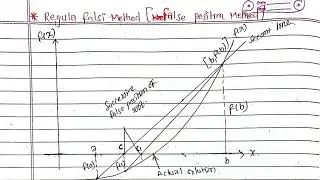 * Regula falsi Method [False position Method]
f(x)
[b, f(b)]
f(x)
Secant line
Successive
false position of
root
f(b)
a
c
x
b
f(a)
Actual solution